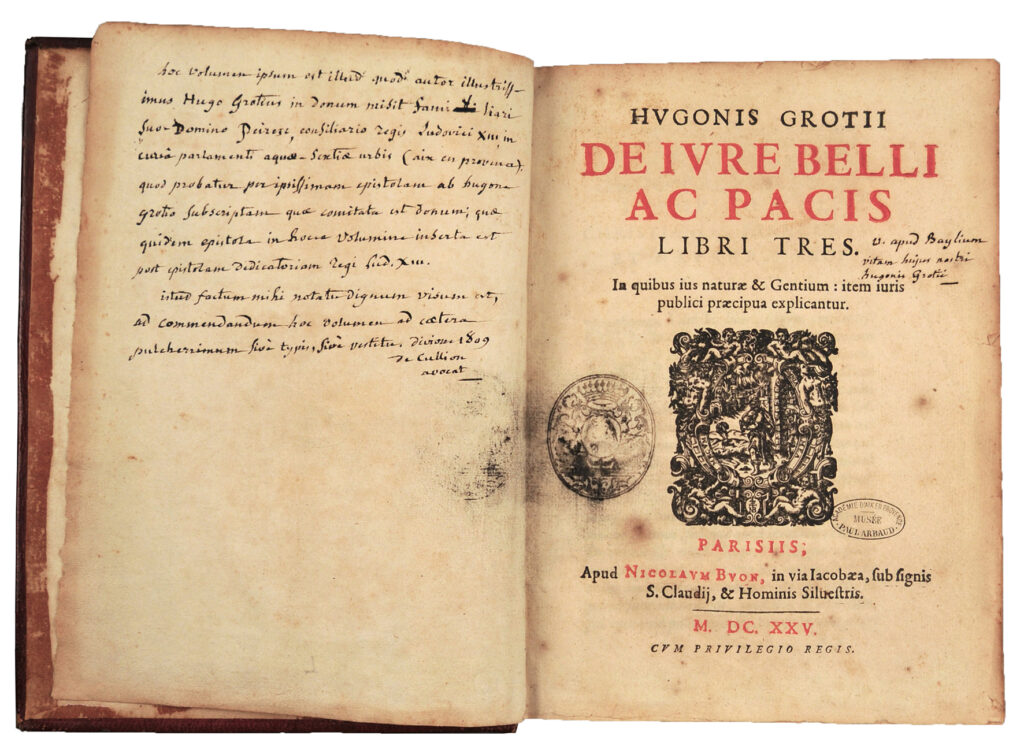 hoc volumen ipsum est illud quod autor illustriss-
imus Hugo Grotius in donum misit fami liari
suo Domino Peiresc, consiliario regis Ludovici XIII, in
curiâ parlamenti aquae-Sextiae urbis (aix en provence),
quod probatur per ipsissimam epistolam ab hugone
grotio subscriptam quae comitata est donum; quae
quidem epistola in hocce volumine inserta est
post epistolam dedicatoriam regi Lud. XIII.
istud factum mihi notatu dignum visum est,
ad commendandum hoc volumen ad caetera
pulcherrimum sivè typis, sivè vestitu. divione 1809
de Cullion
avocat
HVGONIS GROTII
DE IVRE BELLI
AC PACIS
LIBRI TRES.
v. apud Baylium
vitam hujus nostri
hugonis Grotii
In quibus ius naturæ & Gentium : item iuris
publici præcipua explicantur.
ACADÉMIE D'AIX EN PROVENCE
MUSÉE
PAUL ARBAUD
PARISIIS;
Apud NICOLAVM BVON, in via Iacobæa, sub signis
S. Claudij, & Hominis Siluestris.
M. DC. XXV.
CVM PRIVILEGIO REGIS.